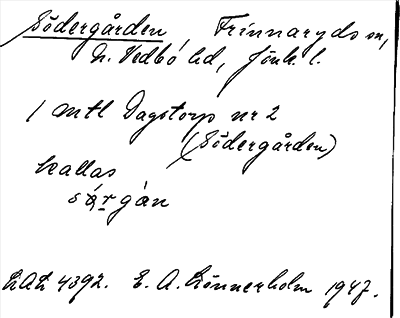 Södergården, Frinnaryds sn,
N. Vedbo hd, Jönk. l.
1 mtl Dagstorp nr 2
(Södergården)
kallas
sárgán
LAL 4392. E. A. Rönnerholm 1947.